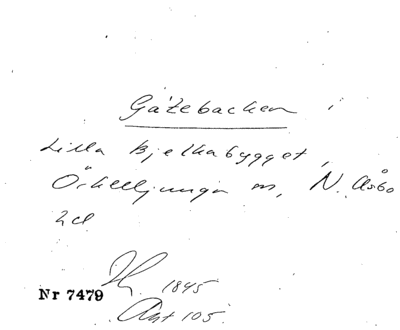 Gåzebacken i
Lilla Bjelkabygget,
Örkelljunga sn, N. Åsbo
hd
1845
Nr 7479
Akt 105.